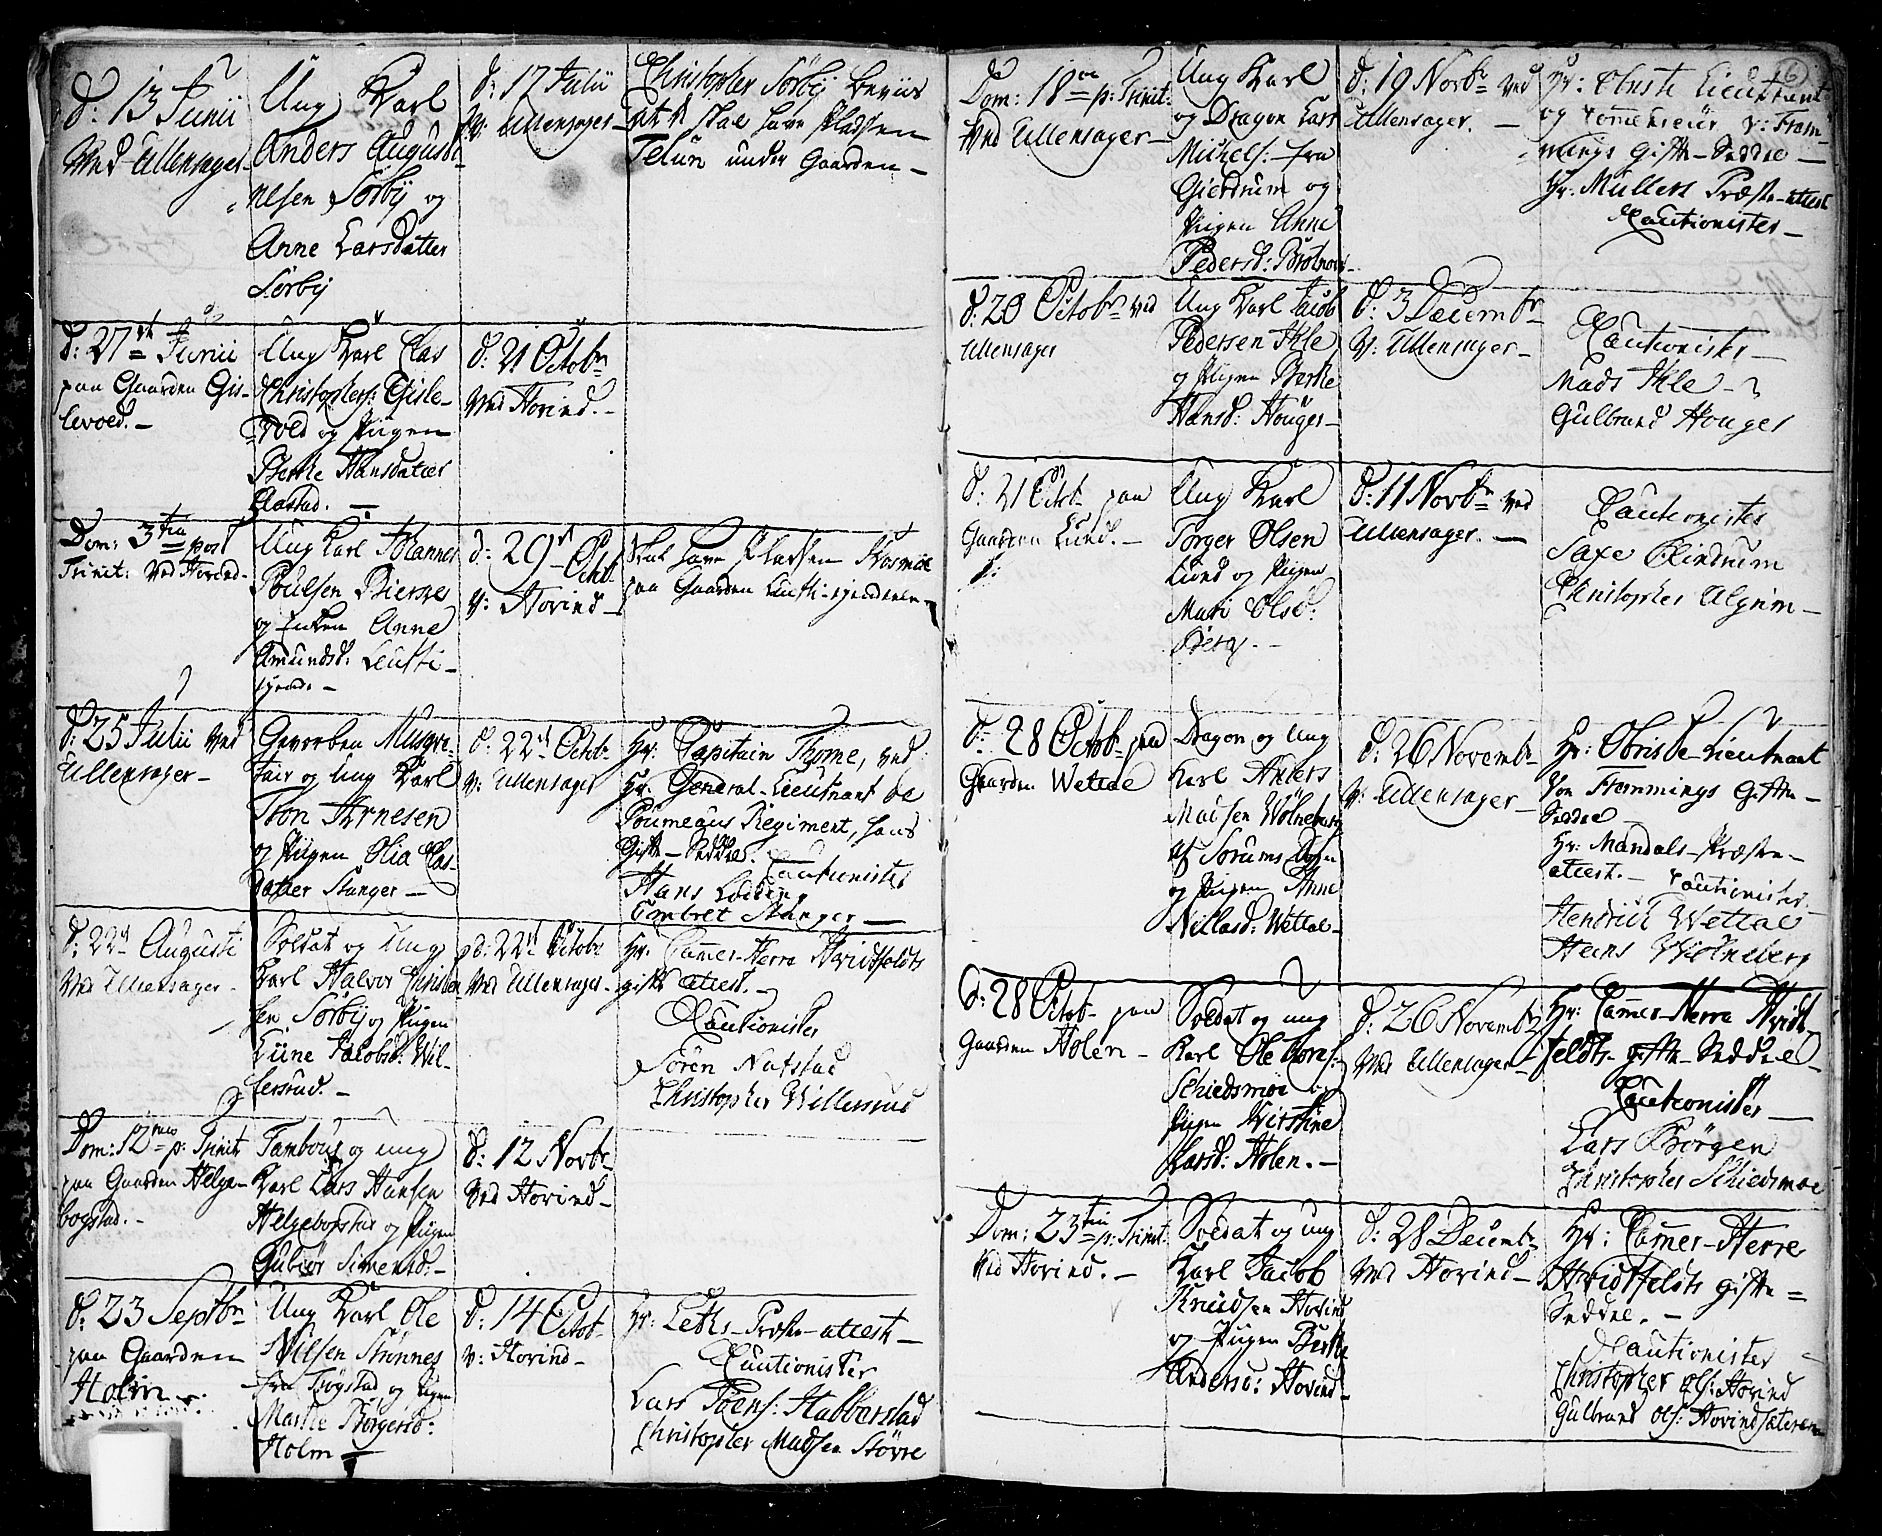 d: 13 Junii
Ved Ullensager-
Ung Karl
Anders Augusti-
nusen Sörbÿ og
Anne Larsdatter
Sörbÿ
d: 17 Julii
V: Ullensager-
Christopher Sörbÿ beviis
at skal have Pladsen
under Gaarden -
d: 27de Junii
paa Gaarden Gis-
levold. -
Ung Karl Clas
Christophers: Gisle-
vold og Piigen
Berthe Hansdatter
d: 21 Octobr
Ved Hovind. -
Dom: 3tia post
Trinit: Ved Hovind-
Ung Karl Johannes
Poulsen Bierke
og Enken Anne
Amundsd:
d: 29de Octb
V: Hovind -
Skal have Pladsen
paa Gaarden
d: 25 Julii ved
Ullensager -
Gevorben Musqve-
tair og Ung Karl
Arnesen
og Piigen Olia Clas-
datter Stanger -
d: 22de Octbr
V: Ullensager
Hr: Capitain Thome, ved
Hr. General-Lieutnant de
Regiment, hans
Gifte-Seddel. Cautionister
Hans
Embret Stanger -
d: 22de Augusti
Ved Ullensager -
Soldat og Ung
Karl Halvor Christen-
sen Sörbÿ og Piigen
Jacobsd: Wil-
lersrud. -
d: 22de Octobr
Ved Ullensager -
Hr: Camer-Herre Hvidtfeldts
gifte attest. -
Cautionister
Sören Natstad
Christopher Willersrud
Dom: 12mo p: Trinit
paa Gaarden Helge-
bogstad. -
Tambour og ung
Karl Lars Hansen
Helgebogstad og Piigen
Gubiör Simensd: -
d: 12 Novbr
Ved Hovind -
d: 23 Septbr
paa Gaarden
Holm -
Ung Karl Ole
Nilsen
fra Trögstad og Pigen
Marthe Börgersd:
Holm -
d: 14 Octob-
V: Hovind -
Hr: Leths Præste-attest -
Cautionister
Lars Habberstad
Christopher Madsen Større
6
Dom: 18va p: Trinit:
Ved Ullensager -
Ung Karl
og Dragon Lars
Michels: fra
Gierdrum og
Piigen Anne
Pedersd:
d: 19 Novbr ved
Ullensager. -
Hr: Obriste Lieutnant
og Commendeur V: Fram-
mings Gifte-Seddel -
Hr. Müllers Præste-attest
Cautionister -
d: 20 Octobr ved
Ullensager
Ung Karl Jacob
Pedersen Ihle
og Piigen Berthe
Hansd: Houger -
d: 3 Decembr
V: Ullensager -
Cautionister -
Mads Ihle -
Gulbrand Houger
d: 21 Octb- paa
Gaarden Lund. -
Ung Karl
Torger Olsen
Lund og Piigen
Mari Olsd:
Berg. -
d: 11 Novbr ved
Ullensager. -
Cautionister
Saxe Rindrum
Christopher Algrim -
d: 28 Octob- paa
Gaarden Wettal
Dragon og Ung
Karl Anders
Madsen Wolneberg
af Sörums Sogn
og Piigen Anne
Nillasd: Wettal -
d: 26 Novembr
V: Ullensager -
Hr: Obriste-Lieutnant
Von Frammings Gifte-
Seddel -
Hr: Mandals-Præste-
attest. - Cautionister
Hendrich Wettal
Hans Wolneberg
d: 28 Octob- paa
Gaarden Holen -
Soldat og ung
Karl Ole
Schiedsmoe og
Piigen Kirstine
Larsd: Holen. -
d: 26 Novembr
Ved Ullensager -
Hr: Camer-Herre Hvidt-
feldts gifte-Seddel -
Cautionister -
Lars Börgen
Christopher Schiedsmoe
Dom: 23tia p: Trinit:
Ved Hovind. -
Soldat og ung
Karl Jacob
Knudsen Hovind
og Piigen Berthe
Andersd: Hovind -
d: 28 Decembr
Ved Hovind -
Hr: Camer-Herre
Hvidtfeldts gifte-
Seddel. -
Cautionister
Christopher Ols: Hovind
Gulbrand Ols: Hovindsæteren